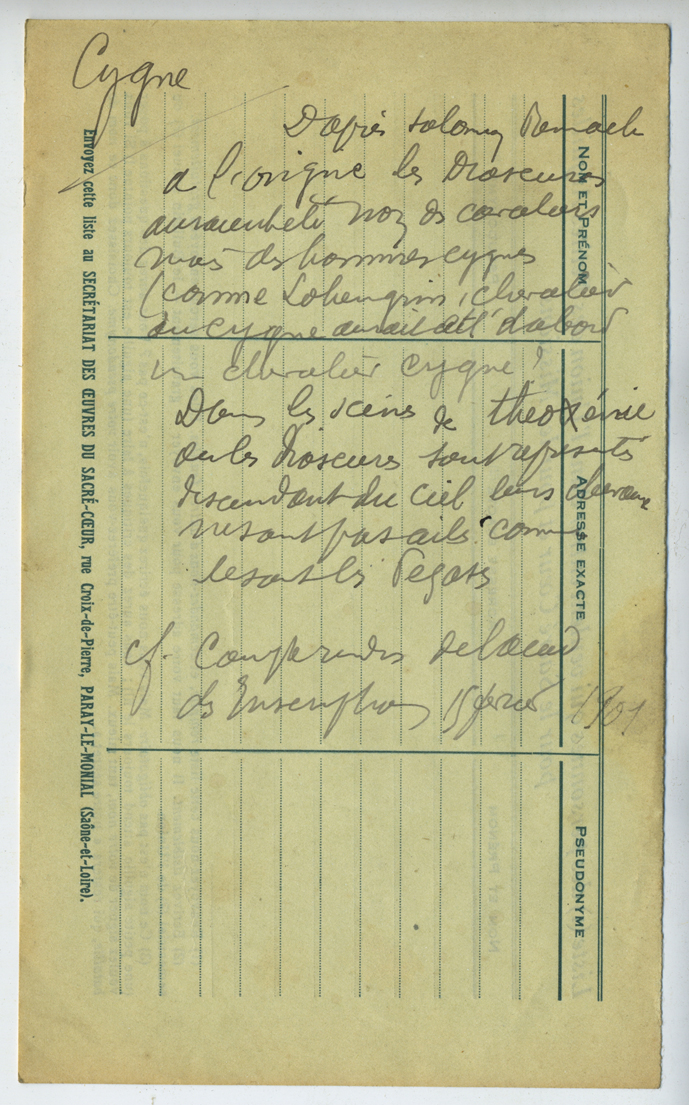 Cygne
D'après Salomon Reinach
a l'origine les Dioscures
auraient été non des cavaliers
mais des hommes cygnes
(comme Lohengrin, chevalier
au cygne aurait été d'abord
un chevalier cygne)
Dans les scènes de theoxénie
ou les Dioscures sont représentés
descendant du ciel leurs chevaux
ne sont pas ailés comme
le sont les Pegases
cf. Comptes rendus de l'acad
des Inscriptions 15 février 1901
NOM ET PRÉNOM
ADRESSE EXACTE
PSEUDONYME
Envoyez cette liste au SECRÉTARIAT DES ŒUVRES DU SACRÉ-CŒUR, rue Croix-de-Pierre, PARAY-LE-MONIAL (Saône-et-Loire).